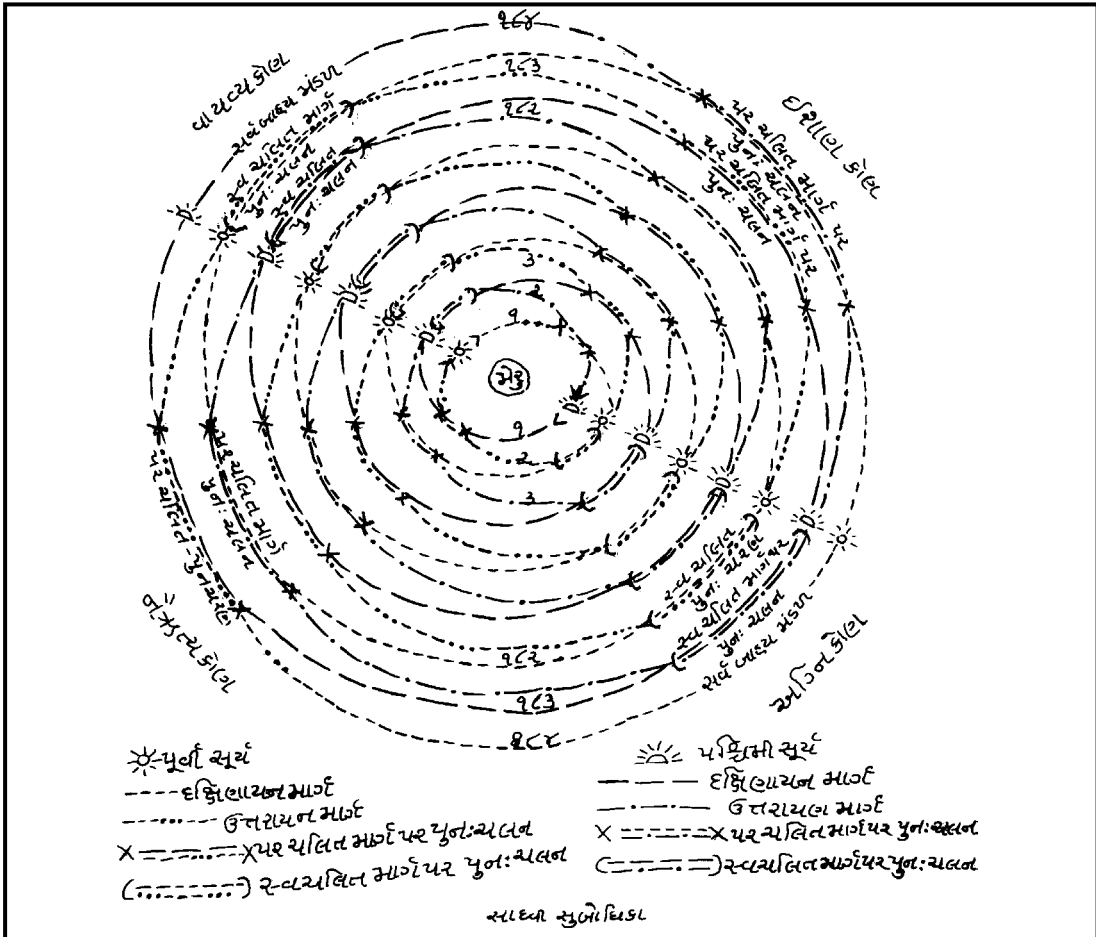 ૧૮૪
૧૮૩
૧૮૨
વાયવ્ય કોણ
સર્વ બાહ્ય મંડળ
સ્વ ચલિત માર્ગે
પુનઃ ચલન
સ્વ ચલિત
પુનઃ ચલન
ઈશાણ કોણ
પર ચલિત માર્ગ પર
પુનઃ ચલન
પર ચલિત માર્ગ પર
પુનઃ ચલન
૩
૨
૧
મેરુ
૧
૨
૩
પર ચલિત માર્ગે
પુનઃ ચલન
પર ચલિત પુનઃચરણ
સ્વ ચલિત
પુનઃ ચરણ
સ્વ ચલિત માર્ગ પર
પુનઃ ચલન
સર્વ બાહ્ય મંડળ
નૈઋત્ય કોણ
અગ્નિ કોણ
૧૮૨
૧૮૩
૧૮૪
પૂર્વી સૂર્ય
દક્ષિણાયન માર્ગ
ઉત્તરાયન માર્ગ
પર ચલિત માર્ગ પર પુનઃ ચલન
સ્વચલિત માર્ગ પર પુનઃ ચલન
પશ્ચિમી સૂર્ય
દક્ષિણાયન માર્ગ
ઉત્તરાયણ માર્ગ
પર ચલિત માર્ગ પર પુનઃ ચલન
સ્વચલિત માર્ગ પર પુનઃ ચલન
સાધ્વી સુબોધિકા